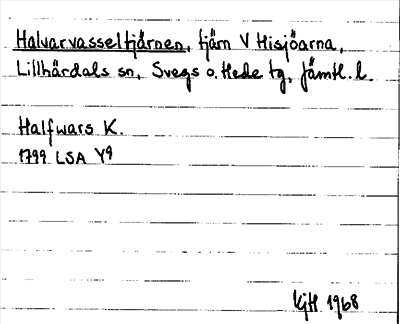 Halvarvasseltjärnen, tjärn V Hisjöarna,
Lillhärdals sn, Svegs o. Hede tg, Jämtl. l.
Halfwars K.
1799 LSA Y9
KjH 1968